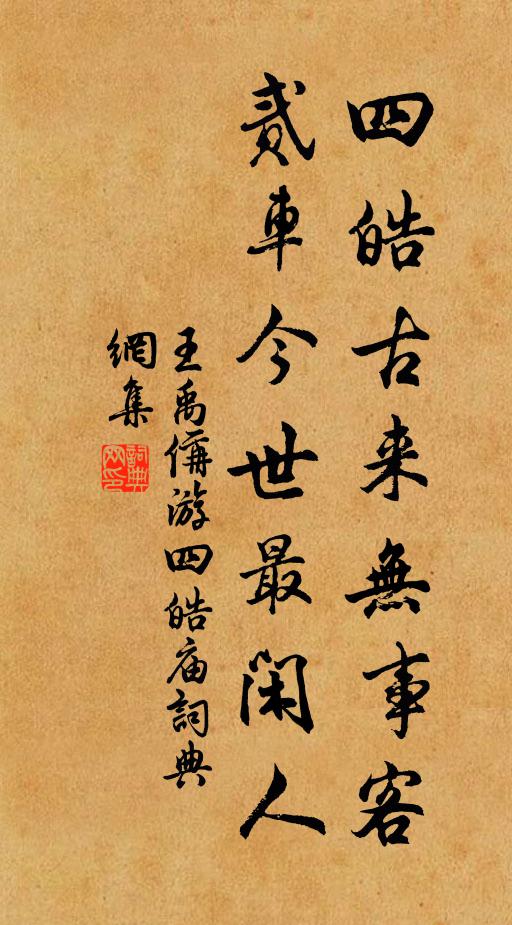 四皓古来無事客
貳車今世最閑人
王禹偁游四皓庙詞典
網集
詞典網印